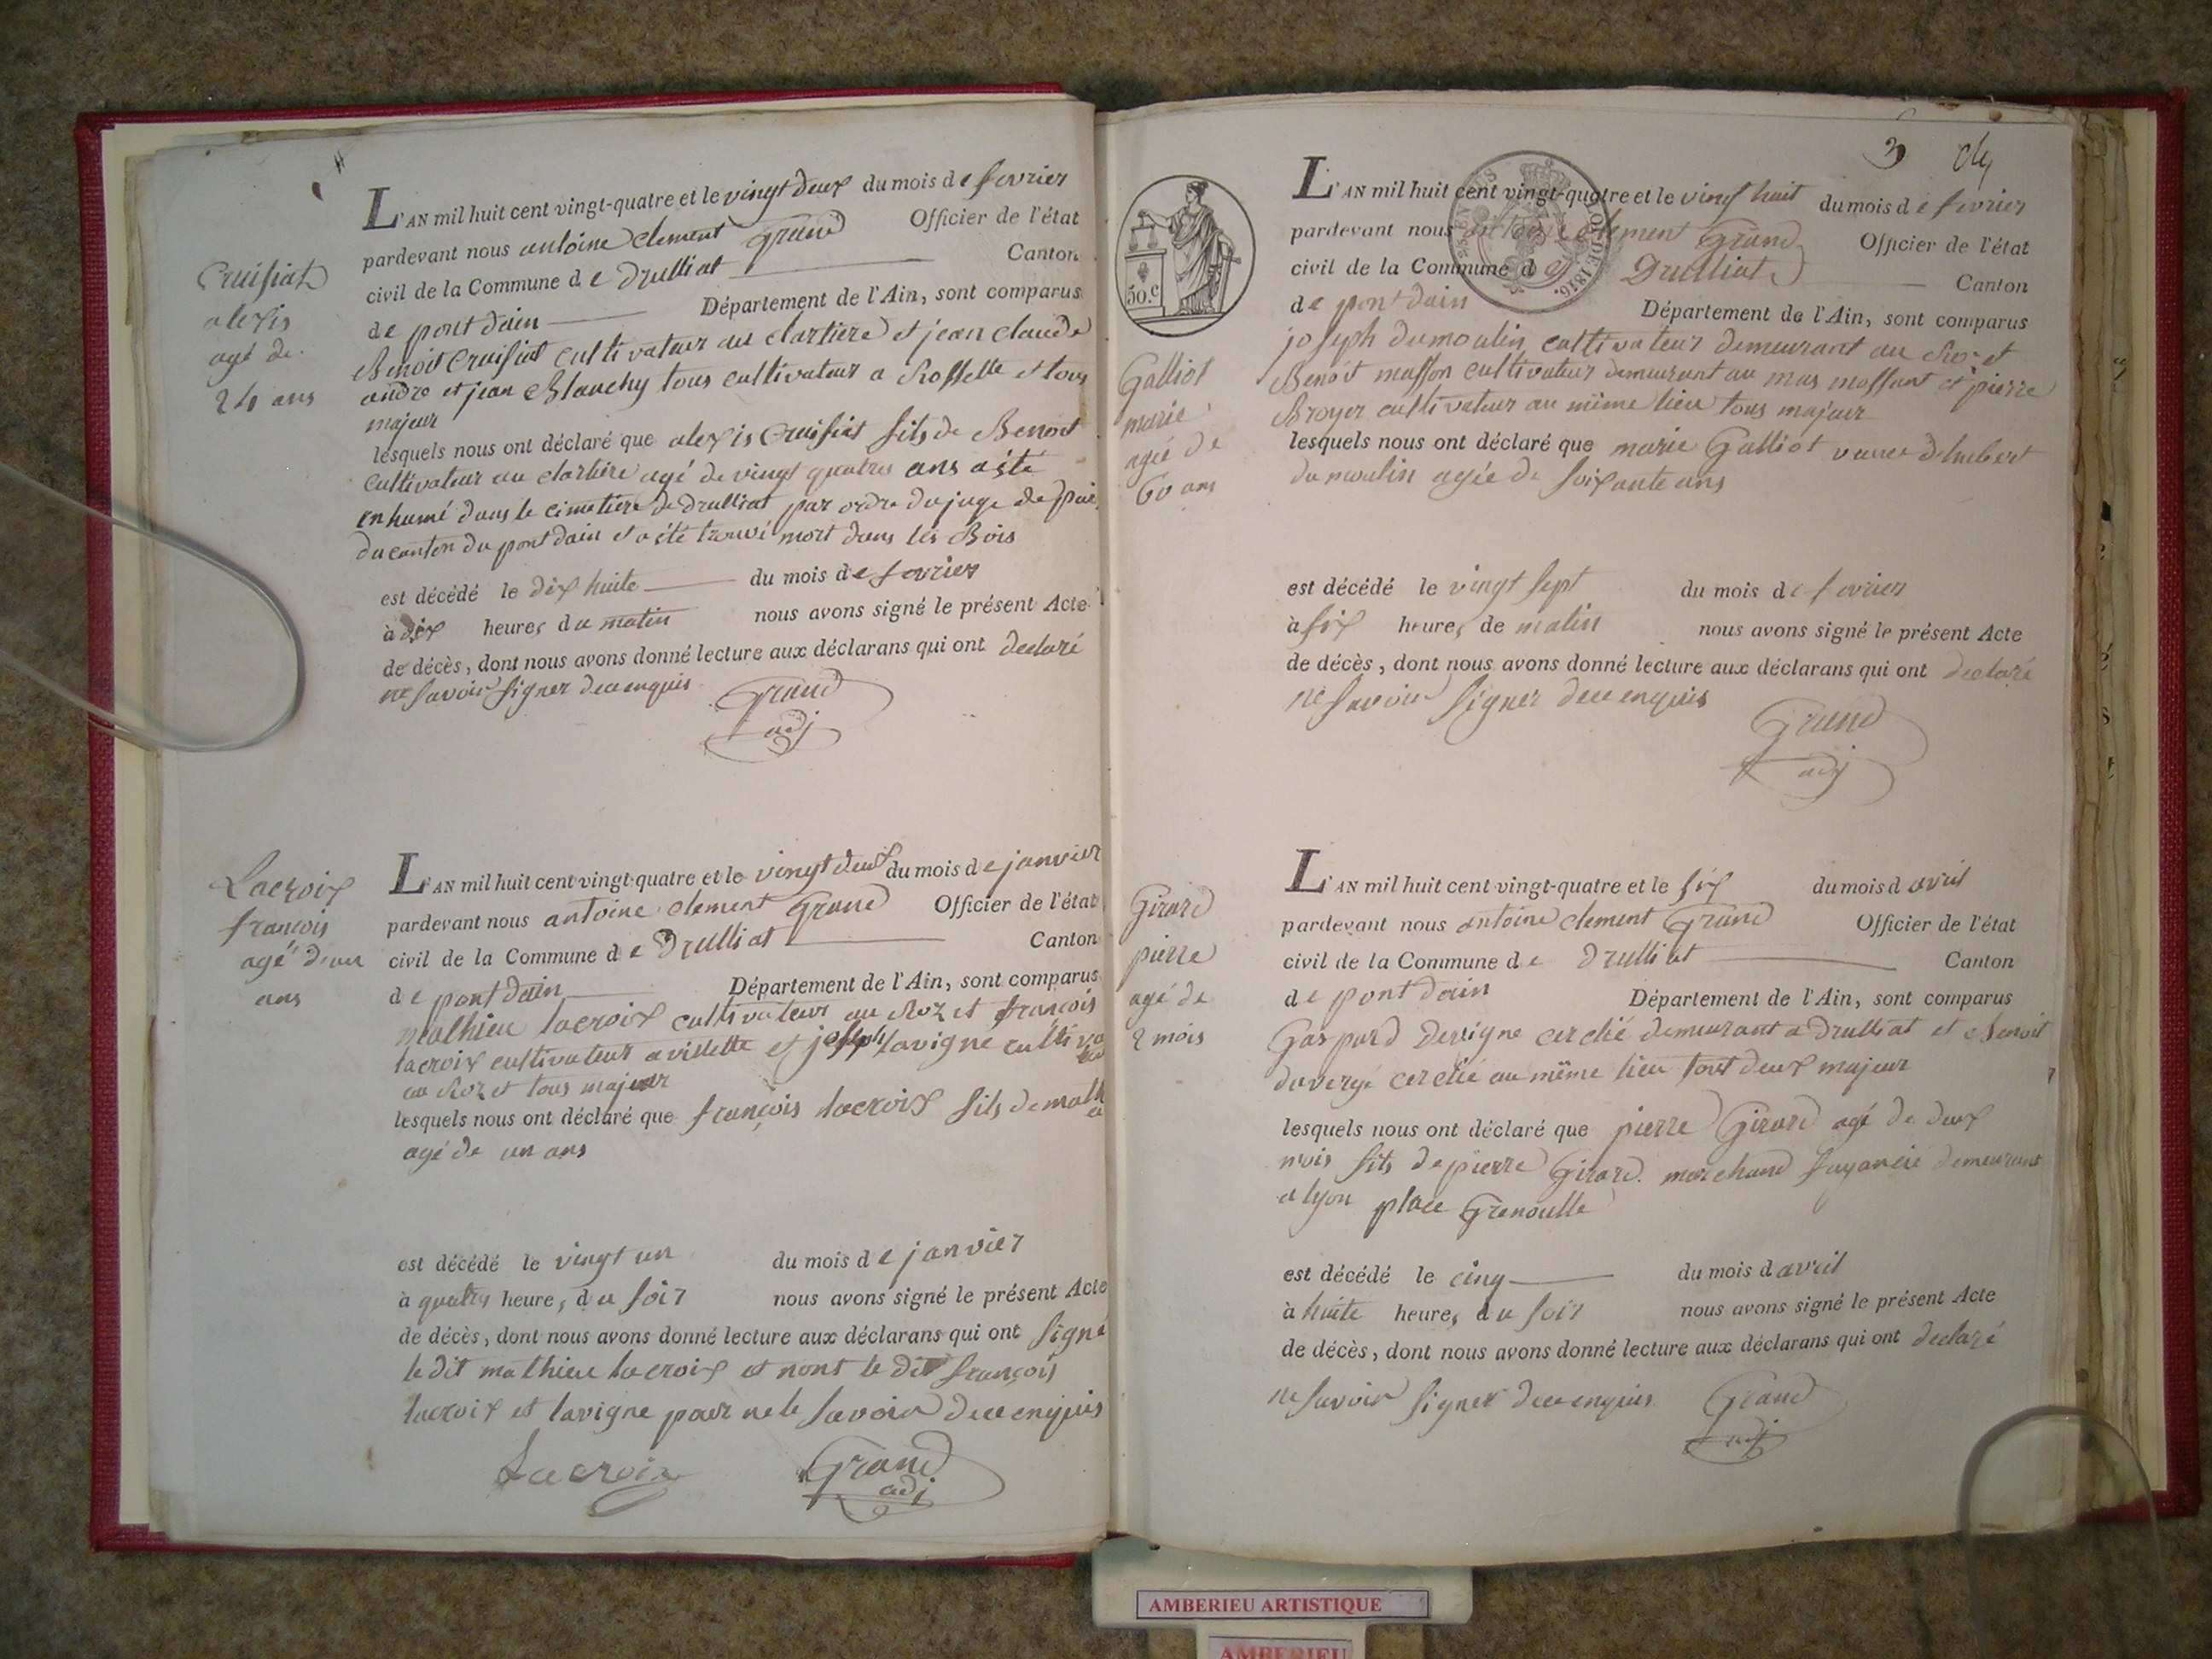 Cruisiat
alexis
agé de
24 ans
L'AN mil huit cent vingt-quatre et le vingt deux du mois de fevrier
pardevant nous antoine clement Grand Officier de l'état
civil de la Commune de Drulliat Canton
de pont dain Département de l'Ain, sont comparus
Benoit Cruisiat cultivateur au clartiere et jean claude
andre et jean Blanchy tous cultivateur a Rossette et tous
majeur
lesquels nous ont déclaré que alexis Cruisiat fils de Benoit
cultivateur au clartiere agé de vingt quatres ans a été
enhumé dans le cimetiere de Drulliat par ordre du juge de paix
du canton du pont dain et a été trouvé mort dans les Bois
est décédé le dix huite du mois de fevrier
à dix heures du matin nous avons signé le présent Acte
de décès, dont nous avons donné lecture aux déclarans qui ont declaré
ne savoir signer de ce enquis
Grand
adj
Lacroix
françois
agé d'un
ans
L'AN mil huit cent vingt-quatre et le vingt deux du mois de janvier
pardevant nous antoine clement Grand Officier de l'état
civil de la Commune de Drulliat Canton
de pont dain Département de l'Ain, sont comparus
mathieu lacroix cultivateur au Roz et françois
lacroix cultivateur a villette et joseph lavigne cultiva
teur
au Roz et tous majeur
lesquels nous ont déclaré que françois lacroix fils de math
agé de un ans
est décédé le vingt un du mois de janvier
à quatres heures, du soir nous avons signé le présent Acte
de décès, dont nous avons donné lecture aux déclarans qui ont signé
le dit mathieu lacroix et nont le dit françois
lacroix et lavigne pour ne le savoir de ce enquis
Lacroix Grand
adj
3
50.c
L'AN mil huit cent vingt-quatre et le vingt huit du mois de fevrier
pardevant nous antoine clement Grand Officier de l'état
civil de la Commune de Drulliat Canton
de pont dain Département de l'Ain, sont comparus
LOI DE 1816.
Galliot
marie
agée de
60 ans
joseph dumoulin cultivateur demeurant au Roz et
Benoit masson cultivateur demeurant au mas massant et pierre
Broyer cultivateur au même lieu tous majeur
lesquels nous ont déclaré que marie Galliot veuve d'hubert
dumoulin agée de soixante ans
est décédé le vingt sept du mois de fevrier
à six heures de matin nous avons signé le présent Acte
de décès, dont nous avons donné lecture aux déclarans qui ont declaré
ne savoir signer de ce enquis
Grand
adj
Girard
pierre
agé de
2 mois
L'AN mil huit cent vingt-quatre et le six du mois d avril
pardevant nous antoine clement Grand Officier de l'état
civil de la Commune de Drulliat Canton
de pont dain Département de l'Ain, sont comparus
Gaspard Devigne cerclié demeurant a Drulliat et Benoit
duvergé cerclié au même lieu tout deux majeur
lesquels nous ont déclaré que pierre Girard agé de deux
mois fils de pierre Girard marchand fayancié demeurant
a lyon place Grenoulle
est décédé le cinq du mois d avril
à huite heures, du soir nous avons signé le présent Acte
de décès, dont nous avons donné lecture aux déclarans qui ont declaré
ne savoir signer de ce enquis
Grand
adj
AMBERIEU ARTISTIQUE
AMBERIEU